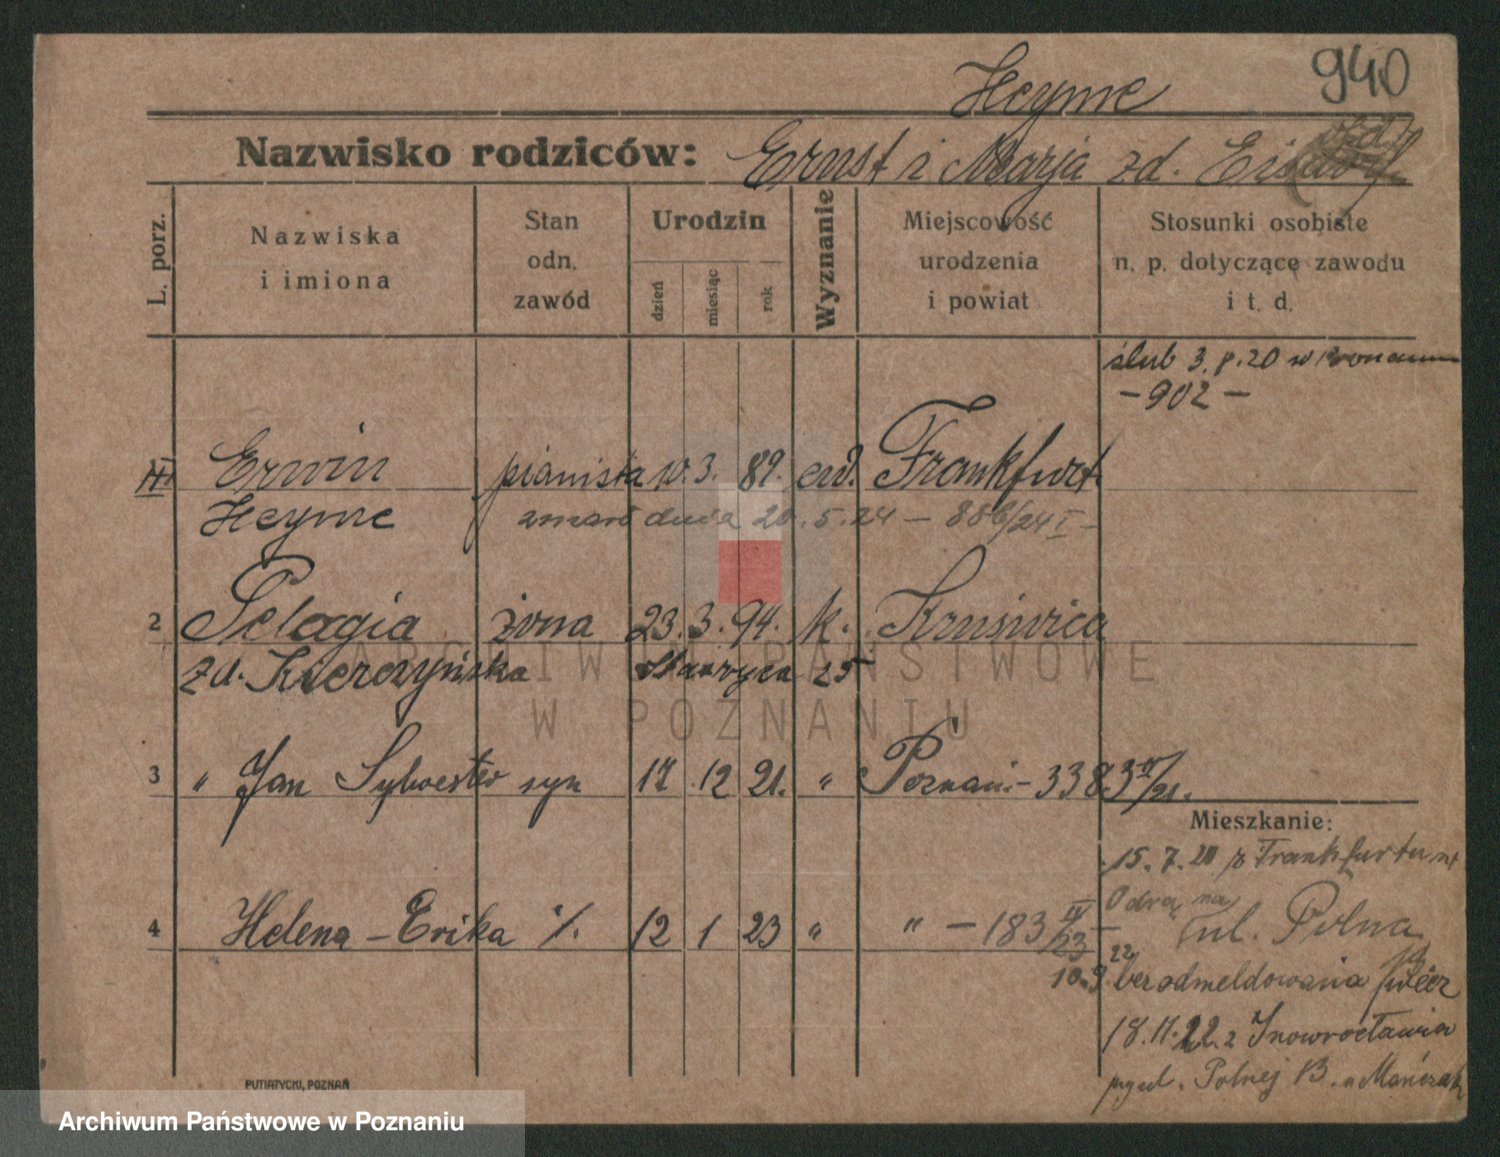 940
Heyme
Nazwisko rodziców: Ernst i Marja zd.
L. porz.
Nazwiska i imiona
Stan odn. zawód
Urodzin
dzień
miesiąc
rok
Wyznanie
Miejscowość urodzenia i powiat
Stosunki osobiste n. p. dotyczące zawodu i t. d.
ślub 3.8.20 w
-902-
Erwin pianista 3. 89. ew. Frankfurt
Heyme zmarł dnia 20.5.24 - 886/24 I -
2 Pelagia żona 23. 3. 94. k. Kruświca
zd. Kierczyńska 25
ARCHIWUM PAŃSTWOWE
W POZNANIU
3 " Jan Sylwester syn 17 12 21. " Poznań - 3383 /21.
Mieszkanie:
15.7.20 z Frankfurtu n/
Odrą na
4 Helena - Erika /. 12 1 23 " " - 183 /23
ul. Polna
10.9. 22 bez odmeldowania
18.11.22. z Inowrocławia
przy ul. Polnej 13. u
PUTIATYCKI, POZNAŃ
Archiwum Państwowe w Poznaniu